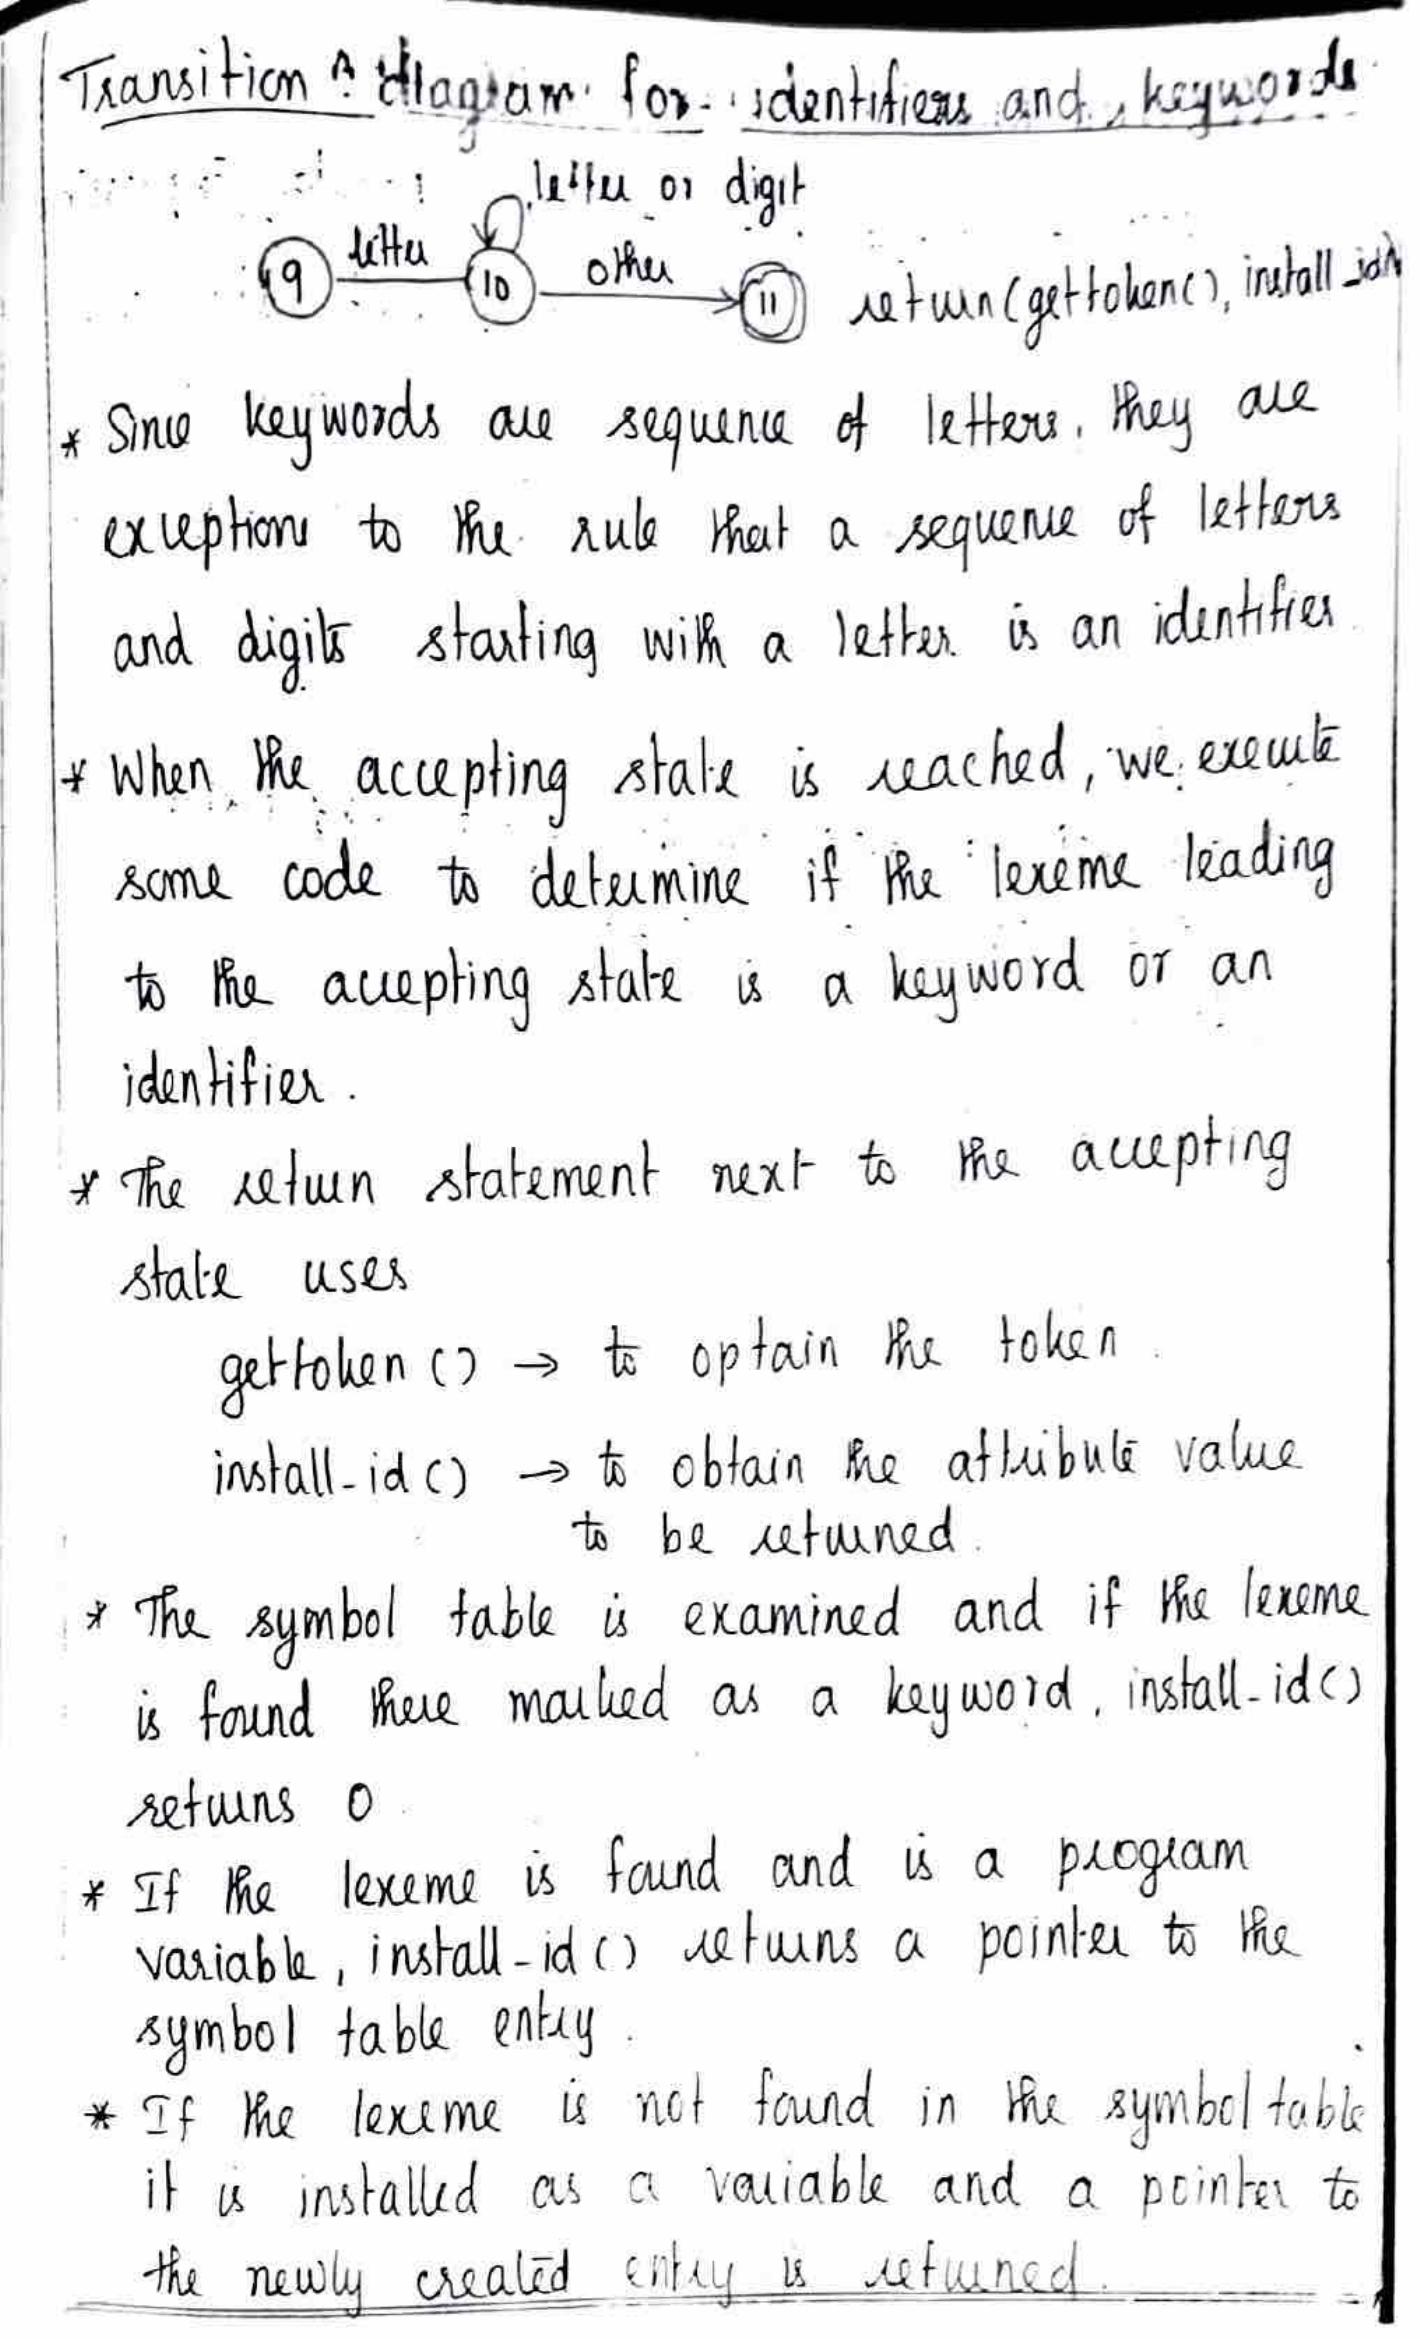 Transition diagram for identifiers and keywords
letter or digit
9 letter 10 other 11 return(gettoken(), install_id)
* Since keywords are sequence of letters, they are
exceptions to the rule that a sequence of letters
and digits starting with a letter is an identifier
* When the accepting state is reached, we execute
some code to determine if the lexeme leading
to the accepting state is a keyword or an
identifier.
* The return statement next to the accepting
state uses
gettoken() → to optain the token.
install-id() → to obtain the attribute value
to be returned.
* The symbol table is examined and if the lexeme
is found there marked as a keyword, install-id()
returns 0
* If the lexeme is found and is a program
variable, install-id() returns a pointer to the
symbol table entry.
* If the lexeme is not found in the symbol table
it is installed as a variable and a pointer to
the newly created entry is returned.